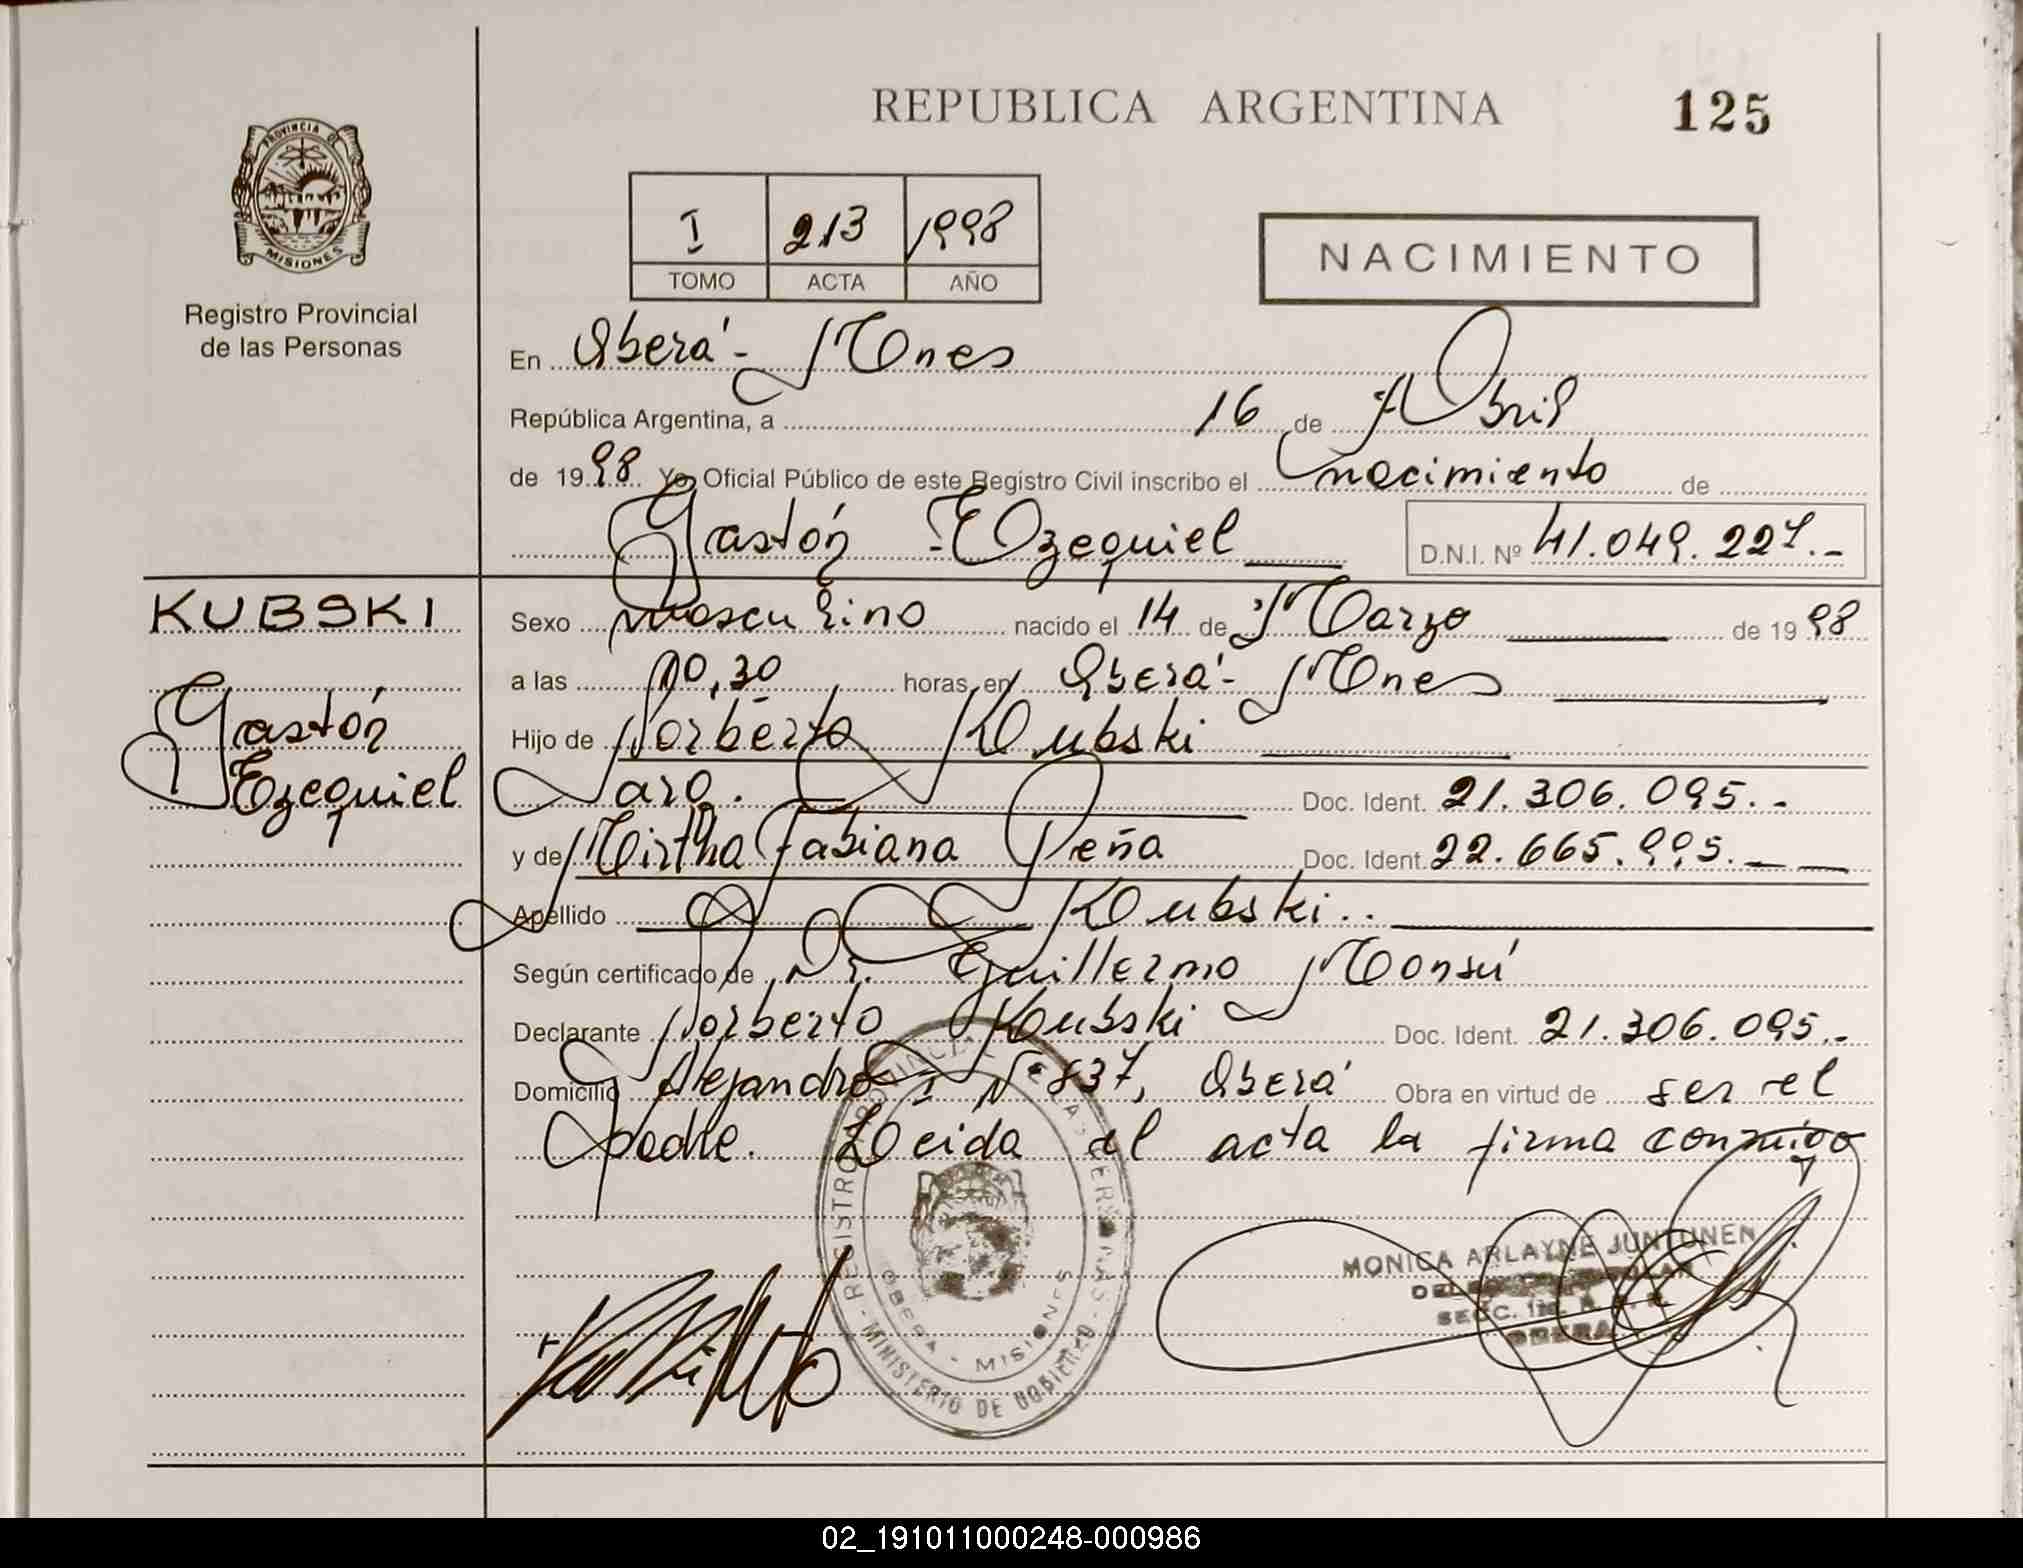 REPUBLICA ARGENTINA
125
PROVINCIA DE
MISIONES
Registro Provincial
de las Personas
I 213 1998
TOMO ACTA AÑO
NACIMIENTO
En Oberá - Mnes
República Argentina, a 16 de Abril
de 1998 Yo, Oficial Público de este Registro Civil inscribo el nacimiento de
Gastón Ezequiel
D.N.I. Nº 41.049.227.-
KUBSKI
Gastón
Ezequiel
Sexo masculino nacido el 14 de Marzo de 1998
a las 10,30 horas, en Oberá - Mnes
Hijo de Norberto Kubski
Doc. Ident. 21.306.095.-
y de Mirtha Fabiana Peña Doc. Ident. 22.665.995.-
Apellido Kubski..
Según certificado de Dr. Guillermo Monsú
Declarante Norberto Kubski Doc. Ident. 21.306.095.-
Domicilio Alejandro I Nº 837, Oberá Obra en virtud de ser el
padre. Leida el acta la firma conmigo
REGISTRO PROVINCIAL DE LAS PERSONAS - MINISTERIO DE GOBIERNO
OBERA - MISIONES
MONICA ARLAYNE JUNTUNEN
OBERA
02_191011000248-000986